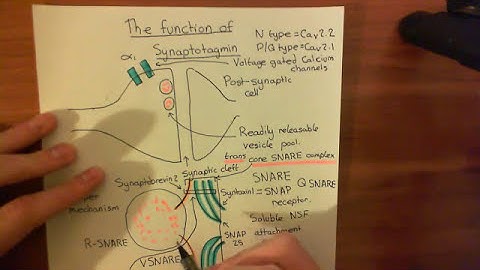 The function of
Synaptotagmin
N type = Cav2.2
P/Q type = Cav2.1
Voltage gated Calcium
channels
α1
Post-synaptic
cell
Readily releasable
vesicle pool.
trans core SNARE complex
Synaptic cleft
Synaptobrevin 2
SNARE
Q SNARE
Syntaxin1 = SNAP
receptor.
mechanism
Soluble NSF
attachment
R-SNARE
SNAP
25
V SNARE